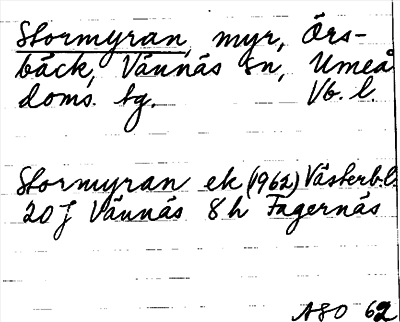 Stormyran, myr, Örs-
bäck, Vännäs sn, Umeå
doms. tg. Vb. l.
Stormyran ek (1962) Västerb.l.
20 J Vännäs 8h Fagernäs
ASO 62